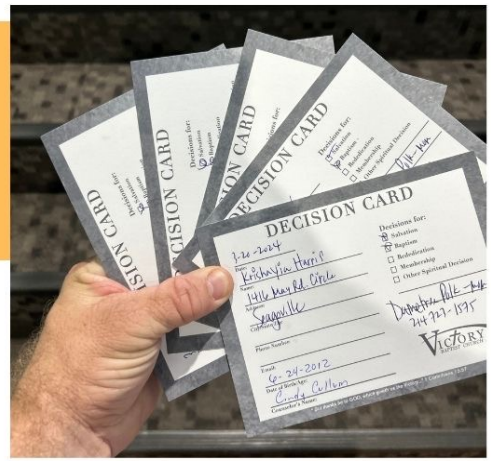 DECISION CARD
DECISION CARD
Decisions for:
Salvation
Baptism
DECISION CARD
Decisions for:
Salvation
DECISION CARD
Decisions for:
Salvation
Baptism
Rededication
Membership
Other Spiritual Decision
Polk - Mom
DECISION CARD
3-20-2024
Date:
Harris
Name:
1416 May Rd. Circle
Address:
Seagoville
City/State/Zip:
Phone Number:
Email:
6-24-2012
Date of Birth/Age:
Cindy Cullum
Counselor's Name:
Decisions for:
Salvation
Baptism
Rededication
Membership
Other Spiritual Decision
Polk - Mom
VICTORY
BAPTIST CHURCH